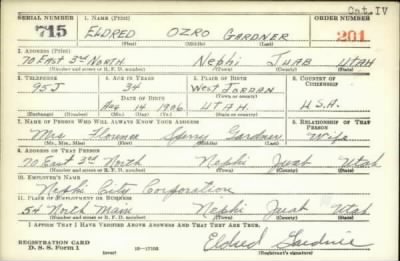 Cat. IV
SERIAL NUMBER 1. NAME (Print) ORDER NUMBER
715 ELDRED OZRO GARDNER 201
(First) (Middle) (Last)
2. ADDRESS (Print)
70 EAST 3rd NORTH Nephi JUAB UTAH
(Number and street or R. F. D. number) (Town) (County) (State)
3. TELEPHONE 4. AGE IN YEARS 5. PLACE OF BIRTH 6. COUNTRY OF CITIZENSHIP
95J 34 West JORDAN
DATE OF BIRTH (Town or county)
Aug 14 1906 UTAH. U.S.A.
(Exchange) (Number) (Mo.) (Day) (Yr.) (State or country)
7. NAME OF PERSON WHO WILL ALWAYS KNOW YOUR ADDRESS 8. RELATIONSHIP OF THAT PERSON
Mrs Florence Sperry Gardner Wife
(Mr., Mrs., Miss) (First) (Middle) (Last)
9. ADDRESS OF THAT PERSON
70 East 3rd North Nephi Juab Utah
(Number and street or R. F. D. number) (Town) (County) (State)
10. EMPLOYER'S NAME
Nephi City Corporation
11. PLACE OF EMPLOYMENT OR BUSINESS
54 North Main Nephi Juab Utah
(Number and street or R. F. D. number) (Town) (County) (State)
I AFFIRM THAT I HAVE VERIFIED ABOVE ANSWERS AND THAT THEY ARE TRUE.
REGISTRATION CARD
D. S. S. Form 1 (over) 16—17105 Eldred Gardner
(Registrant's signature)